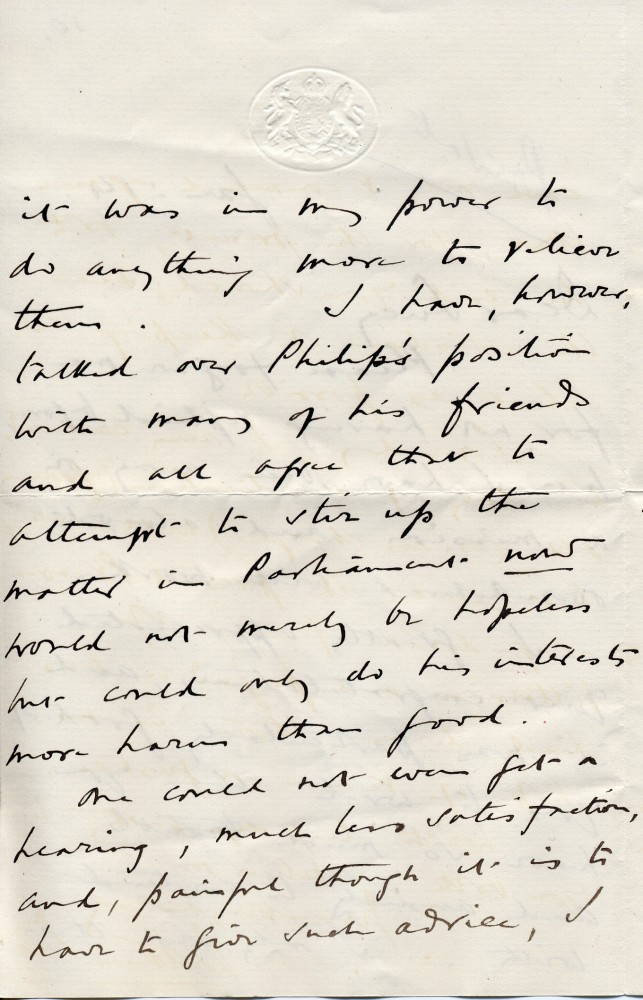 it was in my power to
do anything more to relieve
them. I have, however,
talked over Philip's position
with many of his friends
and all agree that to
attempt to stir up the
matter in Parliament now
would not merely be hopeless
but could only do his interests
more harm than good.
One could not even get a
hearing, much less satisfaction,
and, painful though it is to
have to give such advice, I